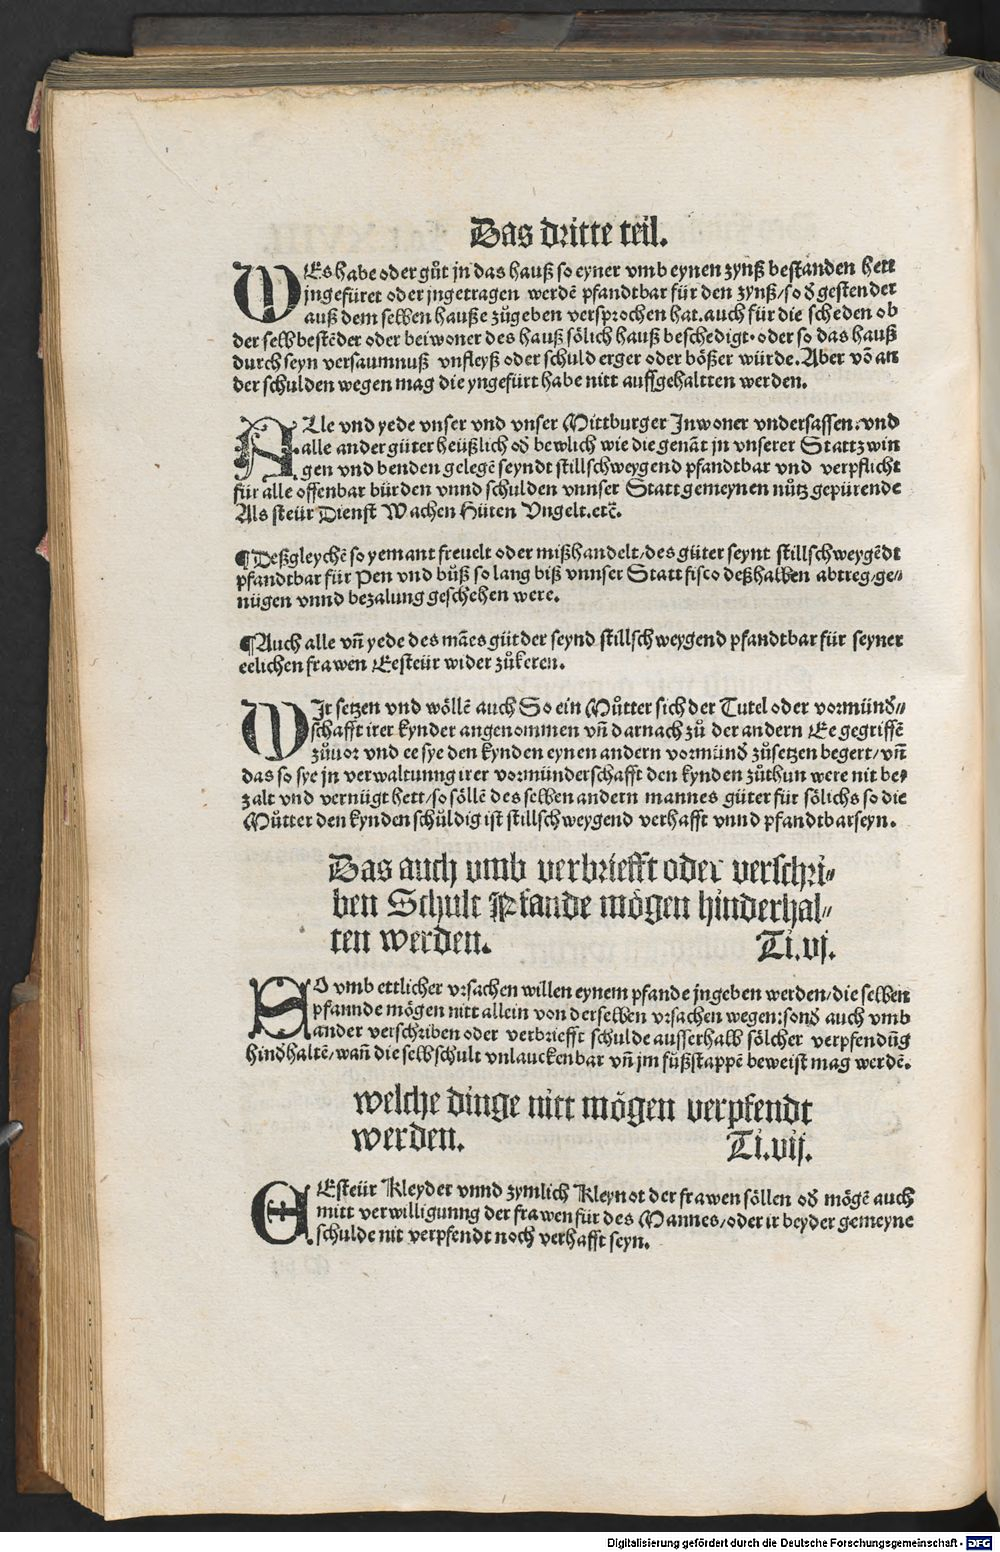 Das dritte teil.
WEs habe oder gůt jn das hauß so eyner vmb eynen zynß bestanden hett
jngefüret oder jngetragen werdē pfandtbar für den zynß/so d gestender
auß dem selben hauße zůgeben versprochen hat. auch für die scheden ob
der selb bestēder oder beiwoner des hauß sölich hauß beschedigt. oder so das hauß
durch seyn versaumnuß vnfleyß oder schuld erger oder bößer würde. Aber vō an
der schulden wegen mag die yngefürt habe nitt auffgehaltten werden.
ALle vnd yede vnser vnd vnser Mittburger Inwoner vndersassen. vnd
alle ander güter heüßlich od bewlich wie die genāt jn vnserer Statt zwin
gen vnd benden gelegē seyndt stillschweygend pfandtbar vnd verpflicht
für alle offenbar bürden vnnd schulden vnnser Statt gemeynen nůtz gepürende
Als steür Dienst Wachen Hüten Vngelt. etc̄.
¶Deßgleychē so yemant freuelt oder mißhandelt/des güter seynt stillschweygēdt
pfandtbar für Pen vnd bůß so lang biß vnnser Statt fisco deßhalben abtreg/ge⸗
nügen vnnd bezalung geschehen were.
¶Auch alle vn̄ yede des mānes güt der seynd stillschweygend pfandtbar für seyner
eelichen frawen Eesteür wider zůkeren.
WIr setzen vnd wöllē auch So ein Můtter sich der Tutel oder vormünd⸗
schafft irer kynder angenommen vn̄ darnach zů der andern Ee gegriffē
zůuor vnd ee sye den kynden eynen andern vormünd zůsetzen begert/vn̄
das so sye jn verwaltunng irer vormünderschafft den kynden zůthun were nit be⸗
zalt vnd vernügt hett/so söllē des selben andern mannes güter für sölichs so die
Můtter den kynden schüldig ist stillschweygend verhafft vnnd pfandtbar seyn.
Das auch vmb verbriefft oder verschri⸗
ben Schult Pfande mögen hinderhal⸗
ten werden. Ti.vj.
SO vmb ettlicher vrsachen willen eynem pfande jngeben werden/die selben
pfannde mögen nitt allein von derselben vrsachen wegen: sond auch vmb
ander verschriben oder verbriefft schulde ausserhalb sölcher verpfendūg
hindhaltē/wan̄ die selb schult vnlauckenbar vn̄ jm fůßstappē beweist mag werdē.
welche dinge nitt mögen verpfendt
werden. Ti.vij.
EEsteür Kleyder vnnd zymlich Kleynot der frawen söllen od mögē auch
mitt verwilligunng der frawen für des Mannes/oder ir beyder gemeyne
schulde nit verpfendt noch verhafft seyn.
Digitalisierung gefördert durch die Deutsche Forschungsgemeinschaft - DFG